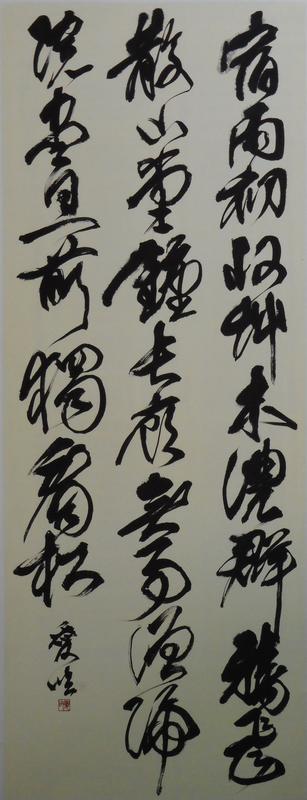 宿雨初收艸木濃群鴉飛
散下堂鐘長廊無事僧歸
院盡日門前獨看松
愛